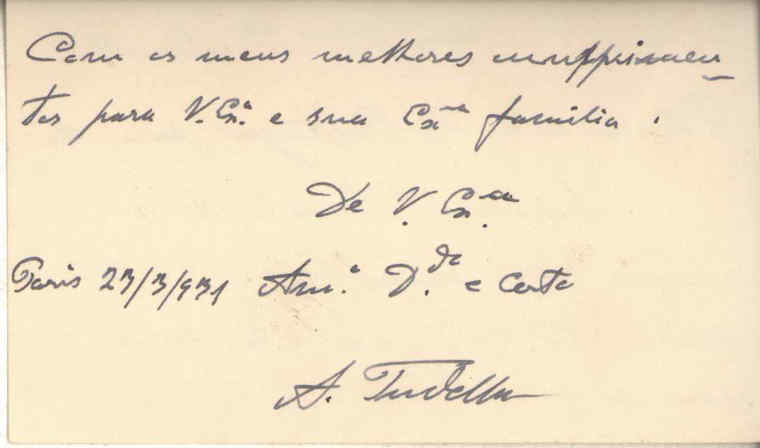 Com os meus melhores cumprimen-
tos para V. Exª. e sua Exᵐᵃ família.
De V. Exª.
Paris 23/3/931 Amº. D.ᵈᵒ e Certo
A. Tudella